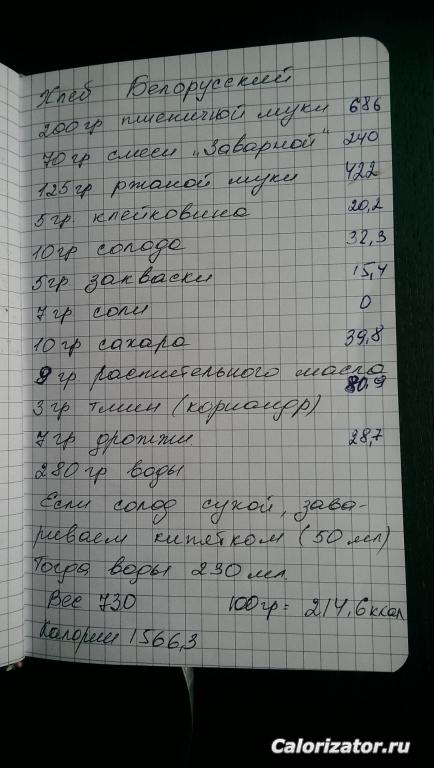 Хлеб Белорусский
200гр пшеничной муки 686
70гр смеси „Заварной" 240
125гр ржаной муки 422
5гр. клейковина 20,2
10гр солода 32,3
5гр закваски 15,4
7гр соли 0
10гр сахара 39,8
9гр. растительного масла
80,9
3гр тмин (кориандр)
7гр дрожжи 28,7
280гр воды
Если солод сухой, зава-
риваем кипятком (50мл)
Тогда воды 230мл.
Вес 730 100гр = 214,6 ккал
Калории 1566,3
Calorizator.ru